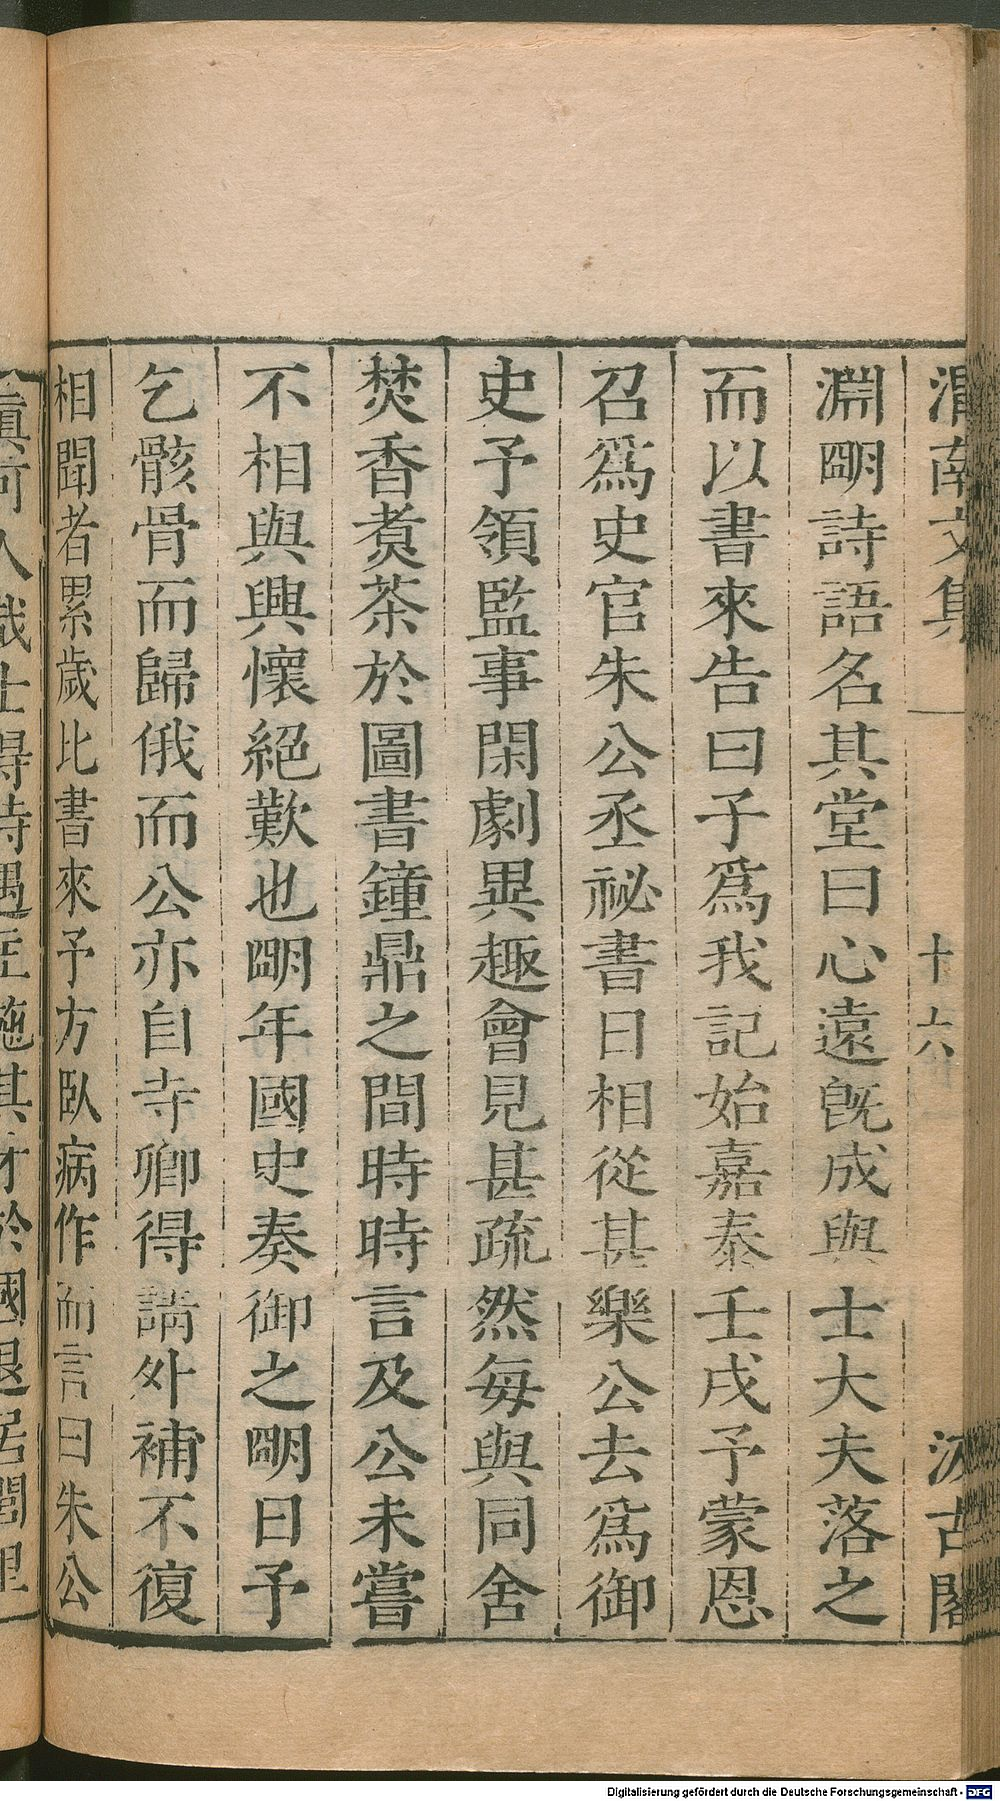 渭南文集 十六 汲古閣
淵朙詩語名其堂曰心遠旣成與士大夫落之
而以書來告曰子爲我記始嘉泰壬戌予蒙恩
召爲史官朱公丞祕書日相從甚樂公去爲御
史予領監事閑劇異趣會見甚疏然每與同舍
焚香煑茶於圖書鐘鼎之間時時言及公未嘗
不相與興懷絕歎也朙年國史奏御之朙日予
乞骸骨而歸俄而公亦自寺卿得請外補不復
相聞者累歲比書來予方臥病作而言曰朱公
眞可人哉士得時遇主施其才於國退居閭里
Digitalisierung gefördert durch die Deutsche Forschungsgemeinschaft - DFG